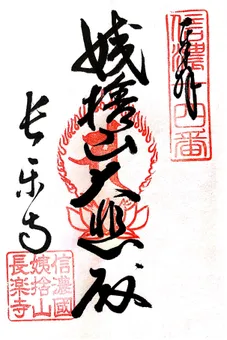 信濃十四番
奉拝
姨捨山大悲殿
長楽寺
信濃國
姨捨山
長楽寺